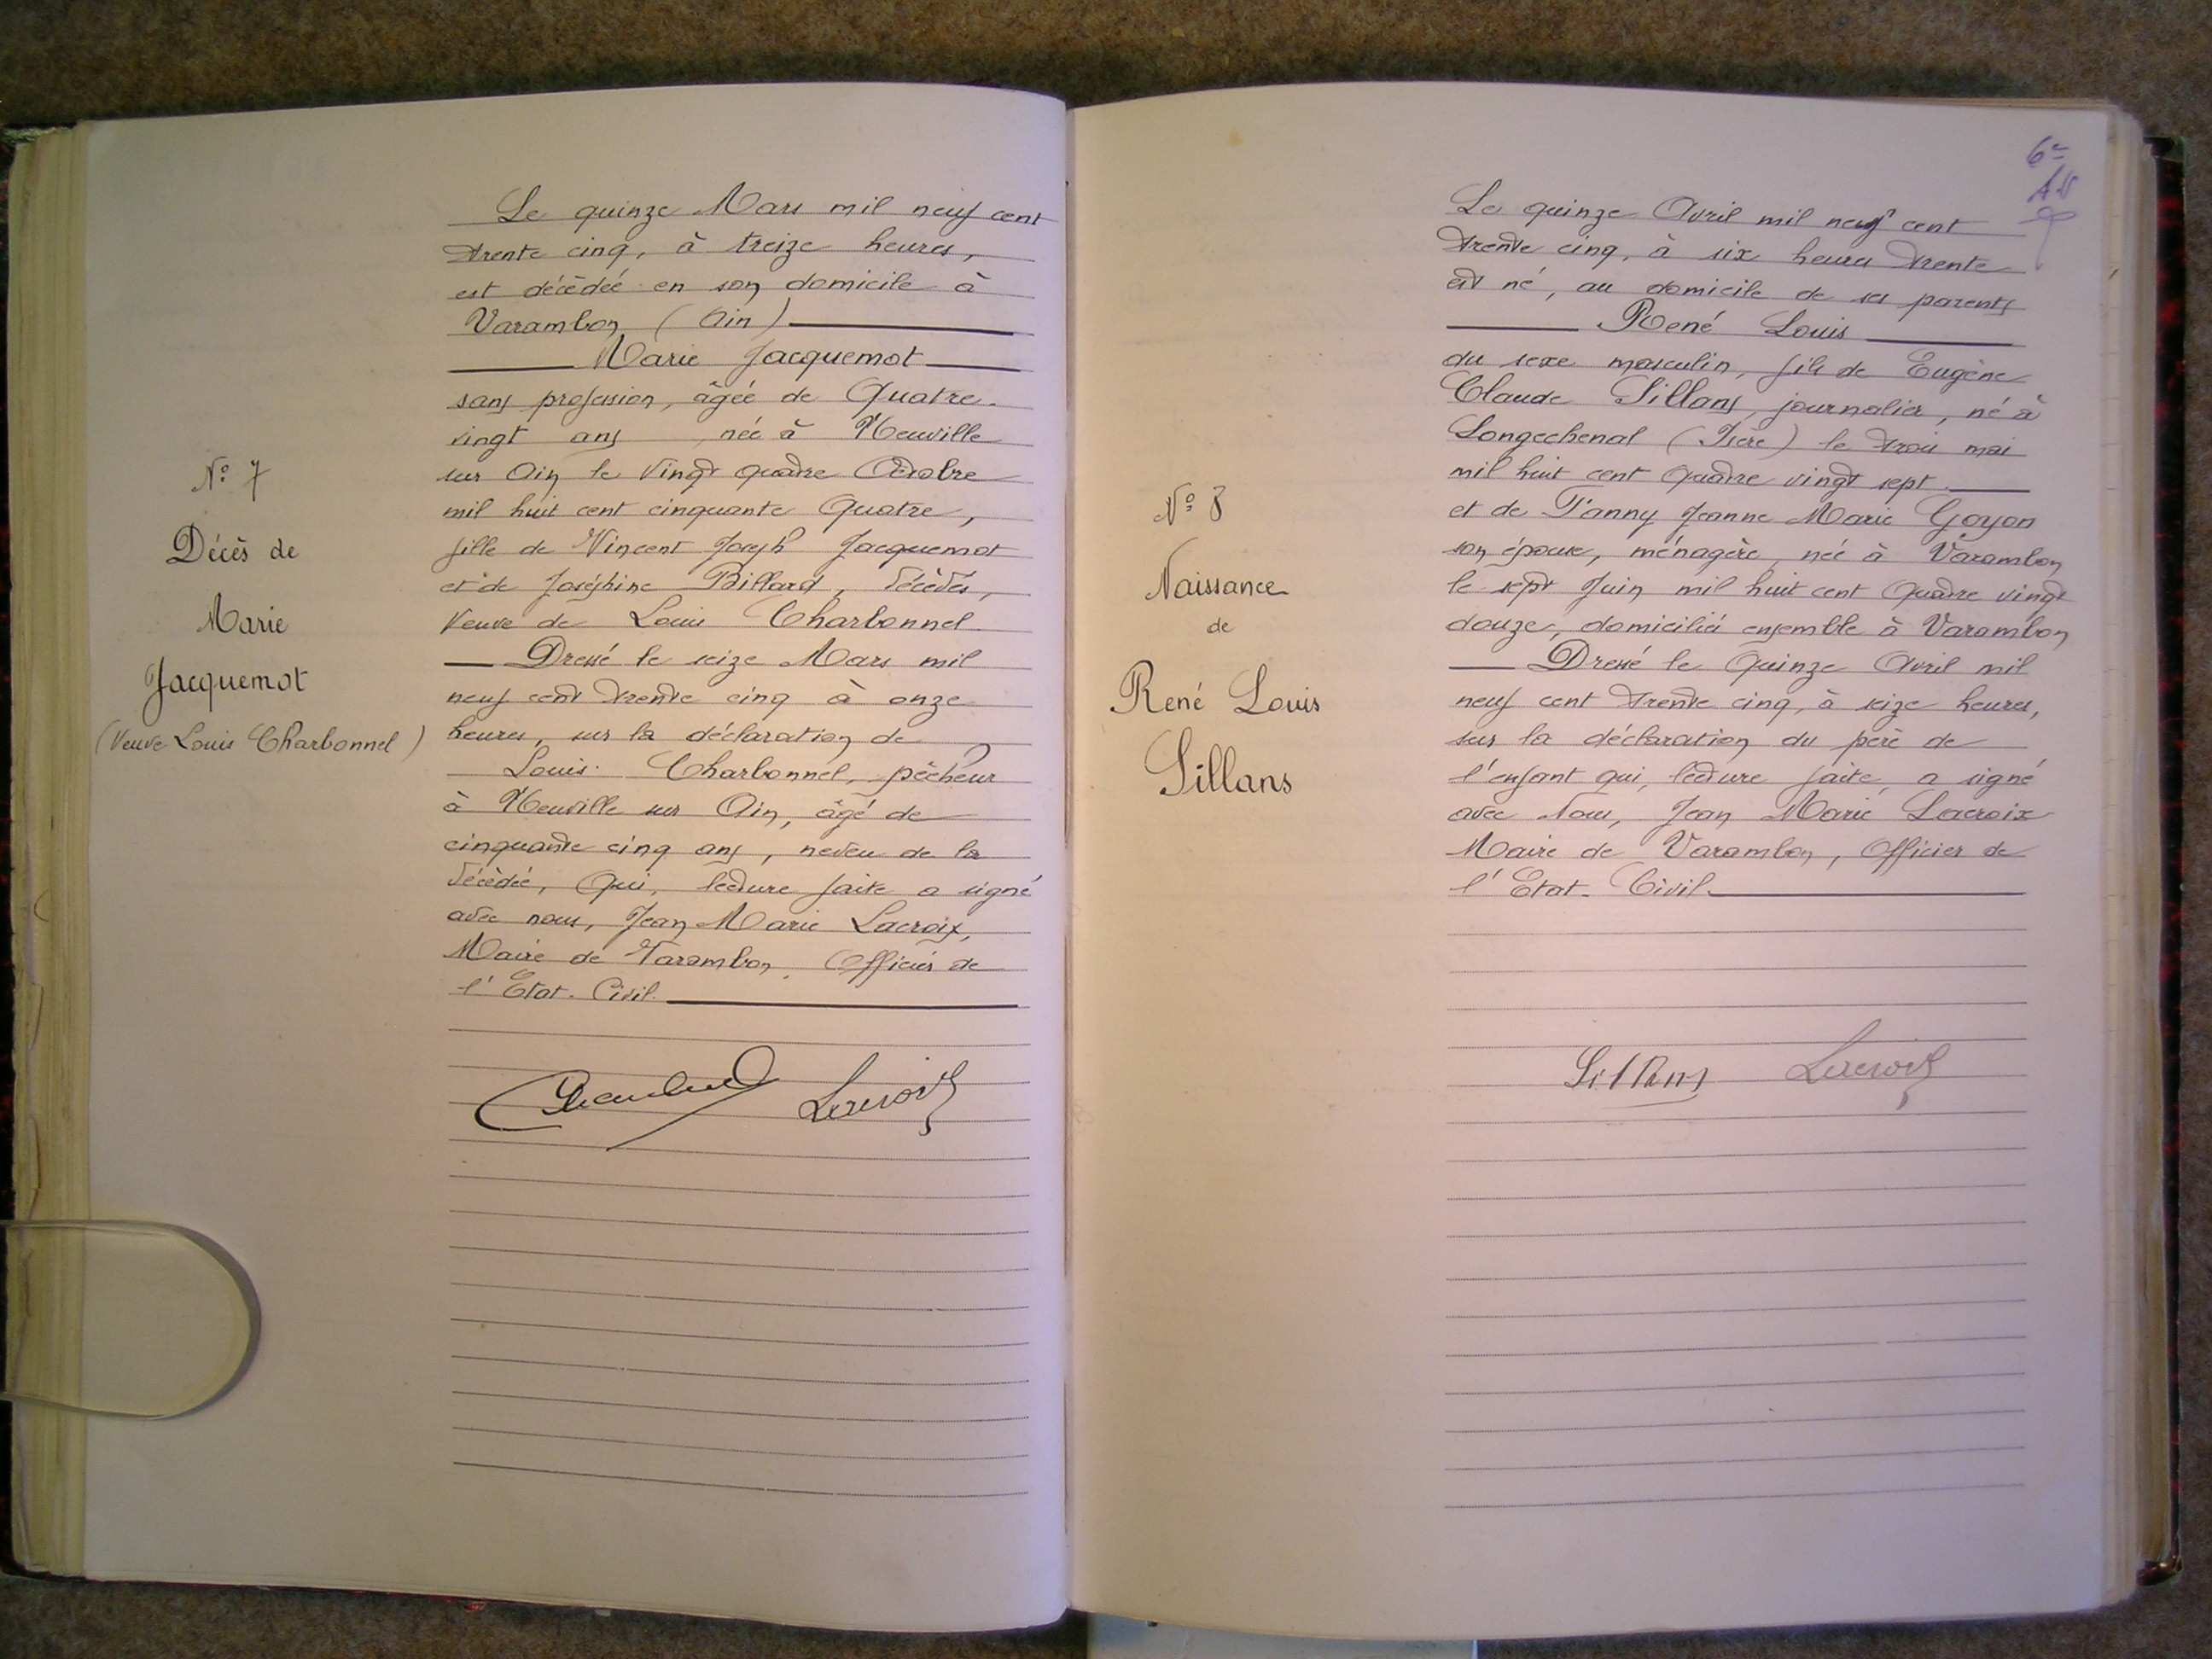 N° 7
Décès de
Marie
Jacquemot
(Veuve Louis Charbonnel)
Le quinze Mars mil neuf cent
trente cinq, à treize heures,
est décédée en son domicile à
Varambon (Ain)
Marie Jacquemot
sans profession, âgée de Quatre-
vingt ans, née à Neuville
sur Ain le Vingt quatre Octobre
mil huit cent cinquante Quatre,
fille de Vincent Joseph Jacquemot
et de Joséphine Billard, décédés,
Veuve de Louis Charbonnel.
Dressé le seize Mars mil
neuf cent trente cinq à onze
heures, sur la déclaration de
Louis Charbonnel, pêcheur
à Neuville sur Ain, âgé de
cinquante cinq ans, neveu de la
décédée, Qui, lecture faite a signé
avec nous, Jean Marie Lacroix,
Maire de Varambon, Officier de
l'Etat-Civil.
Lacroix
6e
N° 8
Naissance
de
René Louis
Sillans
Le quinze Avril mil neuf cent
trente cinq, à six heures trente
est né, au domicile de ses parents
René Louis
du sexe masculin, fils de Eugène
Claude Sillans, journalier, né à
Longechenal (Isère) le trois mai
mil huit cent quatre vingt sept.
et de Fanny Jeanne Marie Goyon
son épouse, ménagère, née à Varambon
le sept Juin mil huit cent Quatre vingt
douze, domiciliés ensemble à Varambon
Dressé le Quinze Avril mil
neuf cent trente cinq, à seize heures,
sur la déclaration du père de
l'enfant qui, lecture faite, a signé
avec Nous, Jean Marie Lacroix
Maire de Varambon, Officier de
l'Etat-Civil.
Sillans Lacroix